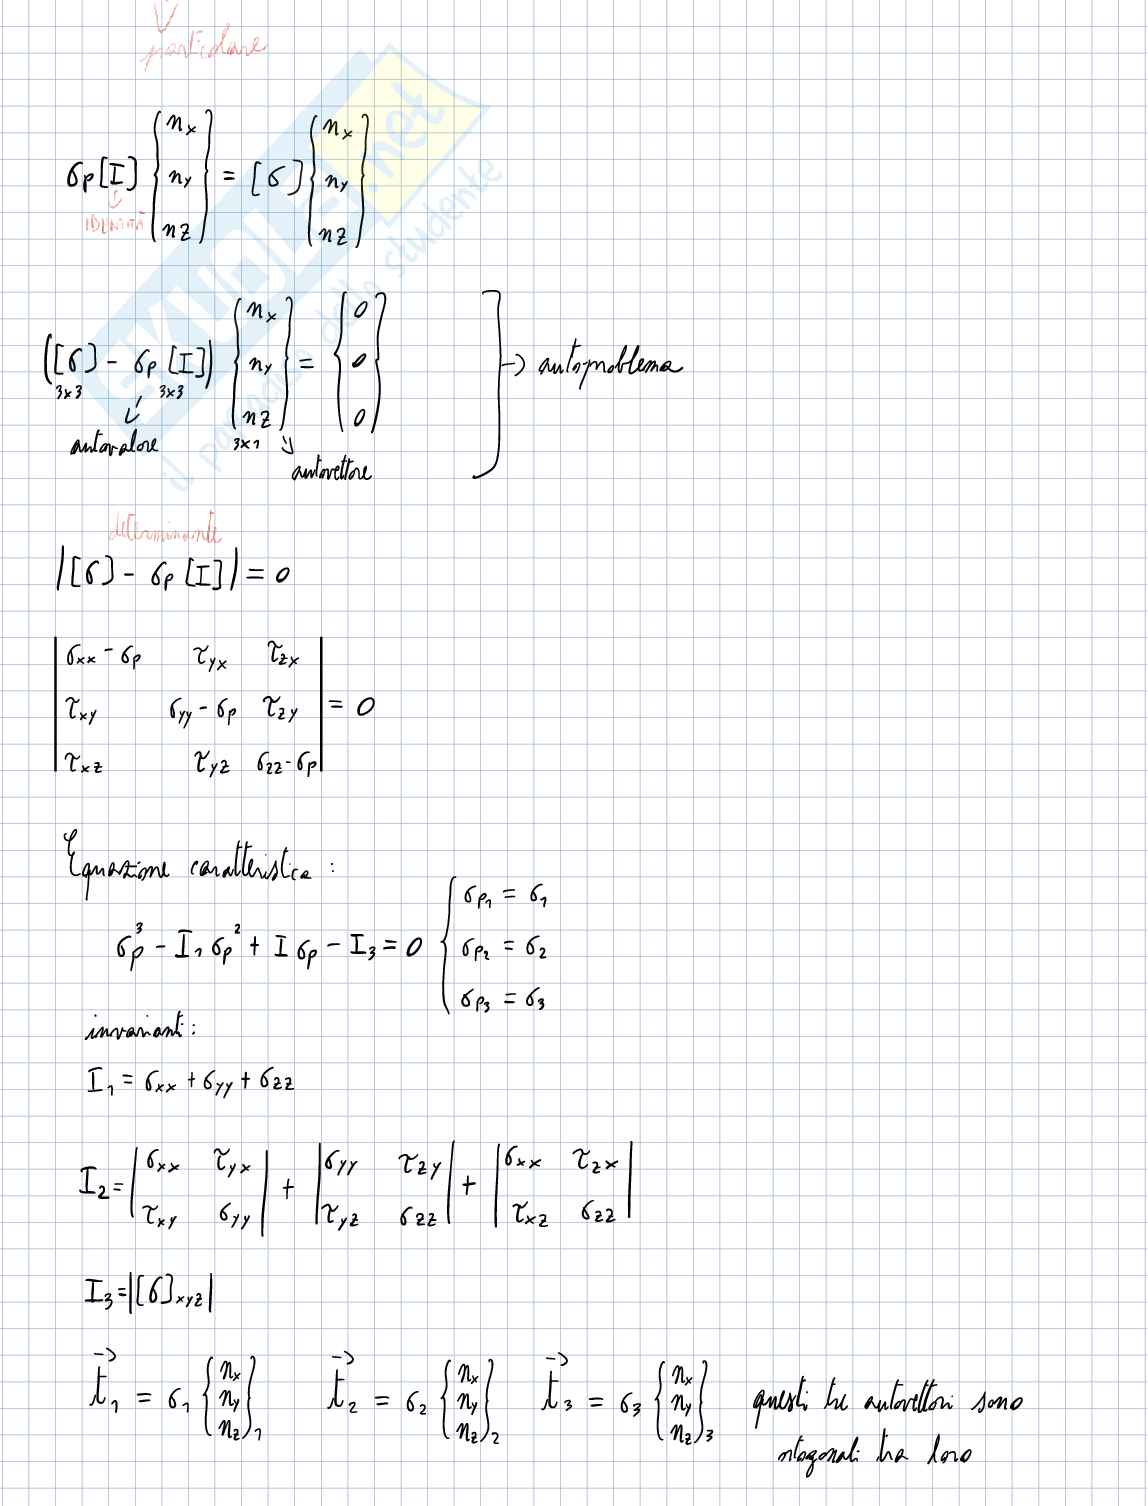 particolare
σp[I] {nx ny nz} = [σ] {nx ny nz}
IDENTITÀ
([σ] - σp [I]) {nx ny nz} = {0 0 0} → autoproblema
3x3 3x3 3x1
autovalore autovettore
determinante
|[σ] - σp [I]| = 0
σxx - σp τyx τzx
τxy σyy - σp τzy = 0
τxz τyz σzz - σp
Equazione caratteristica :
σp³ - I1 σp² + I σp - I3 = 0 { σp1 = σ1
σp2 = σ2
σp3 = σ3
invarianti :
I1 = σxx + σyy + σzz
I2 = |σxx τyx τxy σyy| + |σyy τzy τyz σzz| + |σxx τzx τxz σzz|
I3 = |[σ]xyz|
t1 = σ1 {nx ny nz}1 t2 = σ2 {nx ny nz}2 t3 = σ3 {nx ny nz}3 questi tre autovettori sono
ortogonali tra loro
SKUOLA.net
il paradiso dello studente